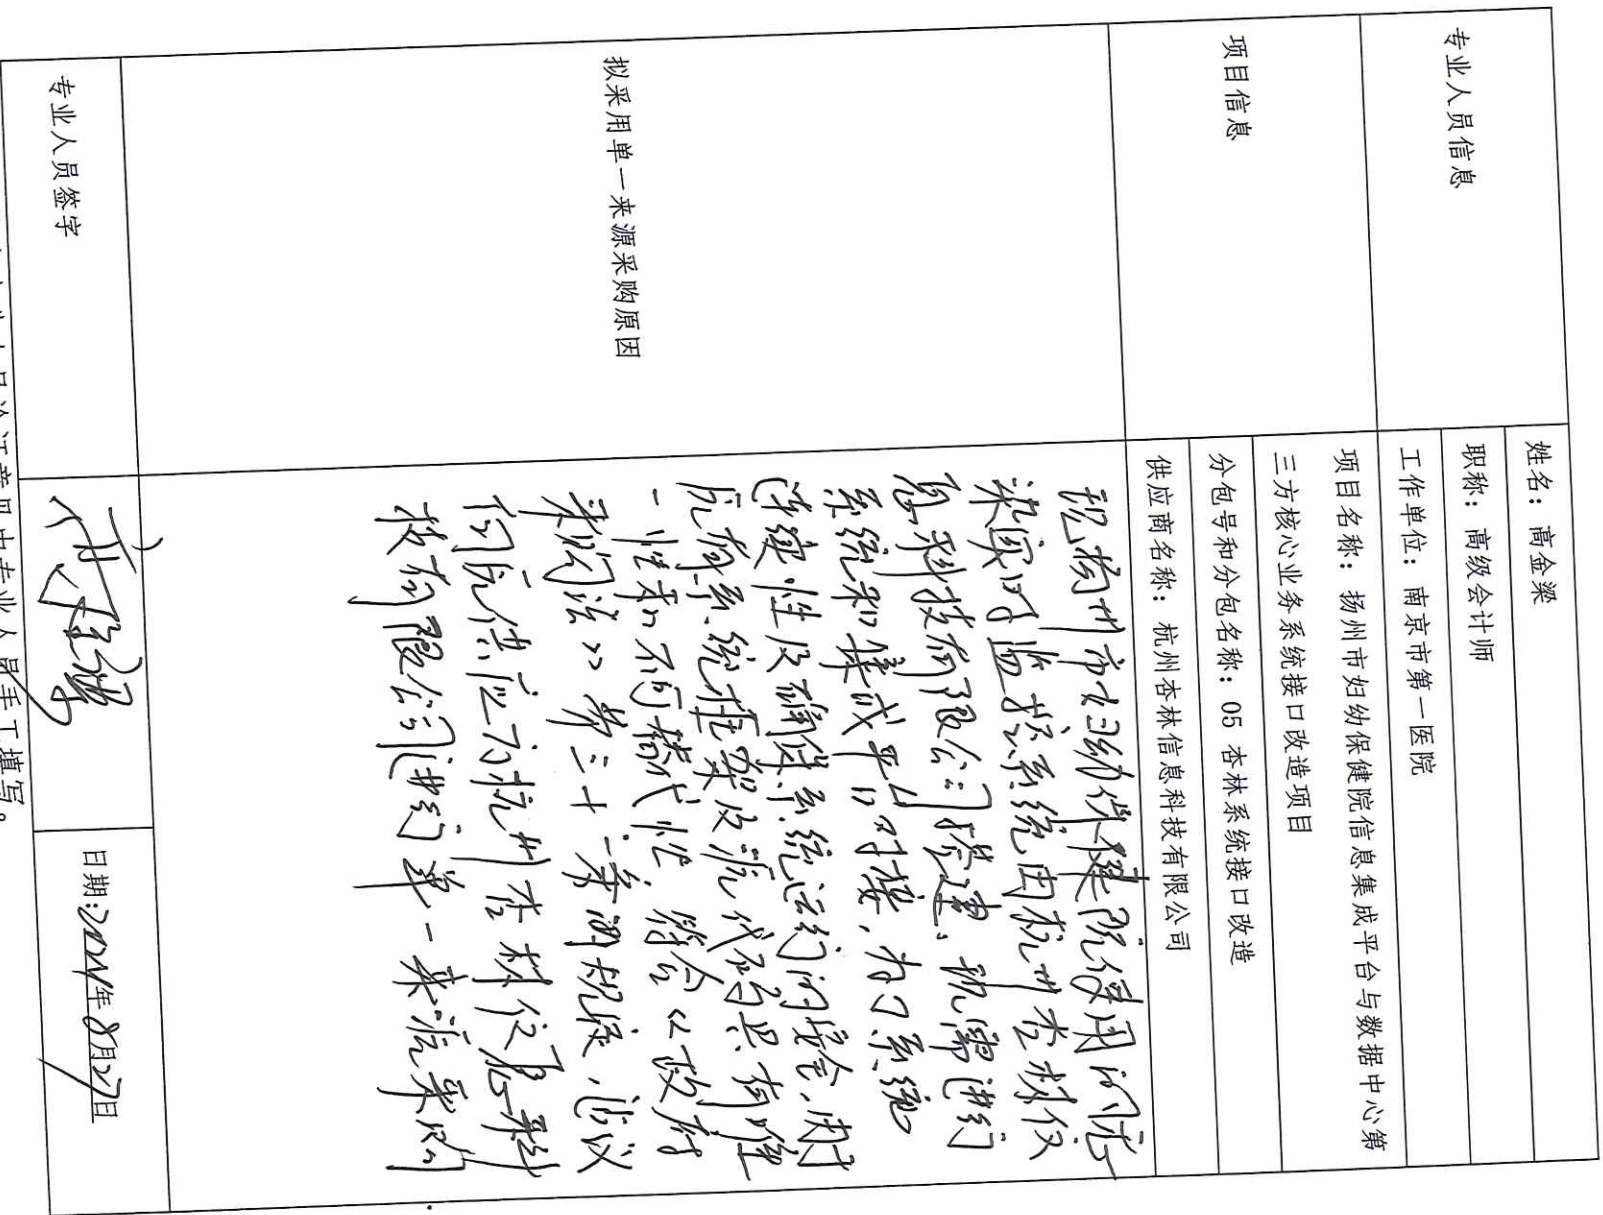 专业人员信息
姓名：高金梁
职称：高级会计师
工作单位：南京市第一医院
项目信息
项目名称：扬州市妇幼保健院信息集成平台与数据中心第
三方核心业务系统接口改造项目
分包号和分包名称：05 杏林系统接口改造
供应商名称：杭州杏林信息科技有限公司
拟采用单一来源采购原因
现扬州市妇幼保健院使用的感
染实时监控系统由杭州杏林信
息科技有限公司搭建，现需进行
系统和集成平台对接，为了系统
连续性及确保系统运行的安全，因
原有系统框架及源代码具有唯
一性和不可替代性，符合《政府
采购法》第三十一条的规定，建议
向原供应商杭州杏林信息科
技有限公司进行单一来源采购
专业人员签字
日期：2024年8月27日
专业人员论证意见由专业人员手工填写。